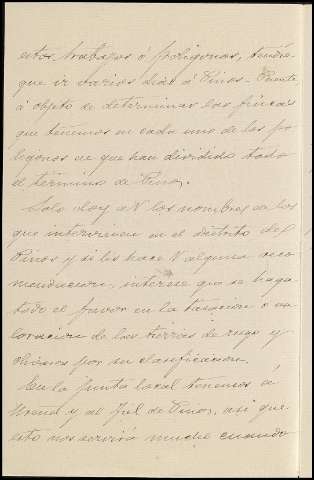 estos trabajos ó poligonos, tendré
que ir varios dias á Pinos-Puente,
á objeto de determinar las fincas
que tenemos en cada uno de los po-
ligonos en que han dividido todo
el termino de Pinos.
Solo doy a V los nombres de los
que intervienen en el distrito del
Pinos y si les hace V alguna reco-
mendacion, interese que se haga
todo el favor en la tasacion o va-
loracion de las tierras de riego y
olivares por su clasificacion.
En la Junta local tenemos á
y al Gil de Pinos, asi que
esto nos servirá mucho cuando